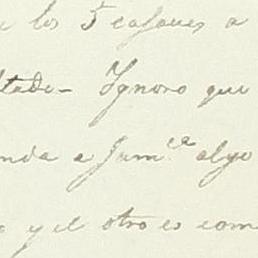 los 5 cajones a
ltado- Ignoro que
nda a Sumce algo
y el otro es com